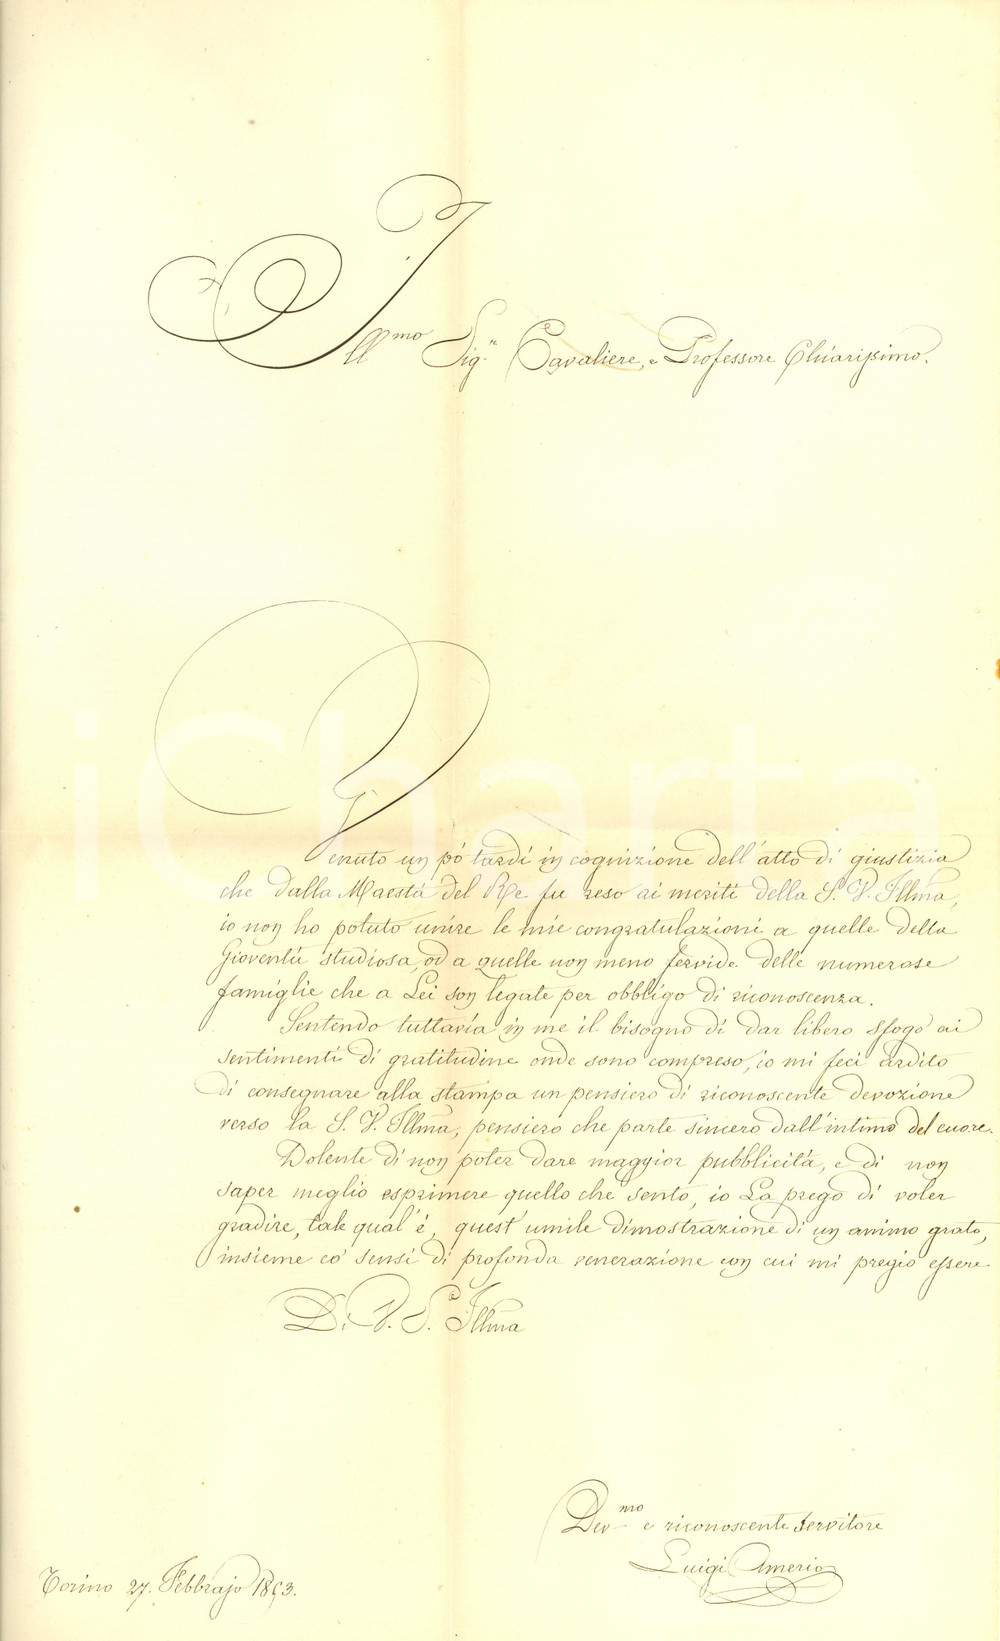 Ill.mo Sig.r Cavaliere, e Professore Chiarissimo.
Venuto un pò tardi in cognizione dell'atto di giustizia
che dalla Maestà del Re fu reso ai meriti della S. V. Illma,
io non ho potuto unire le mie congratulazioni a quelle della
Gioventù studiosa, od a quelle non meno fervide delle numerose
famiglie che a Lei son legate per obbligo di riconoscenza.
Sentendo tuttavia in me il bisogno di dar libero sfogo ai
sentimenti di gratitudine onde sono compreso, io mi feci ardito
di consegnare alla stampa un pensiero di riconoscente devozione
verso la S. V. Illma, pensiero che parte sincero dall'intimo del cuore.
Dolente di non poter dare maggior pubblicità, e di non
saper meglio esprimere quello che sento, io La prego di voler
gradire, tale qual'è, quest'umile dimostrazione di un animo grato,
insieme co' sensi di profonda venerazione con cui mi pregio essere
Di V. S. Illma
Dev.mo e riconoscente servitore
Luigi Amerio
Torino 27. Febbrajo 1853.
iCharta